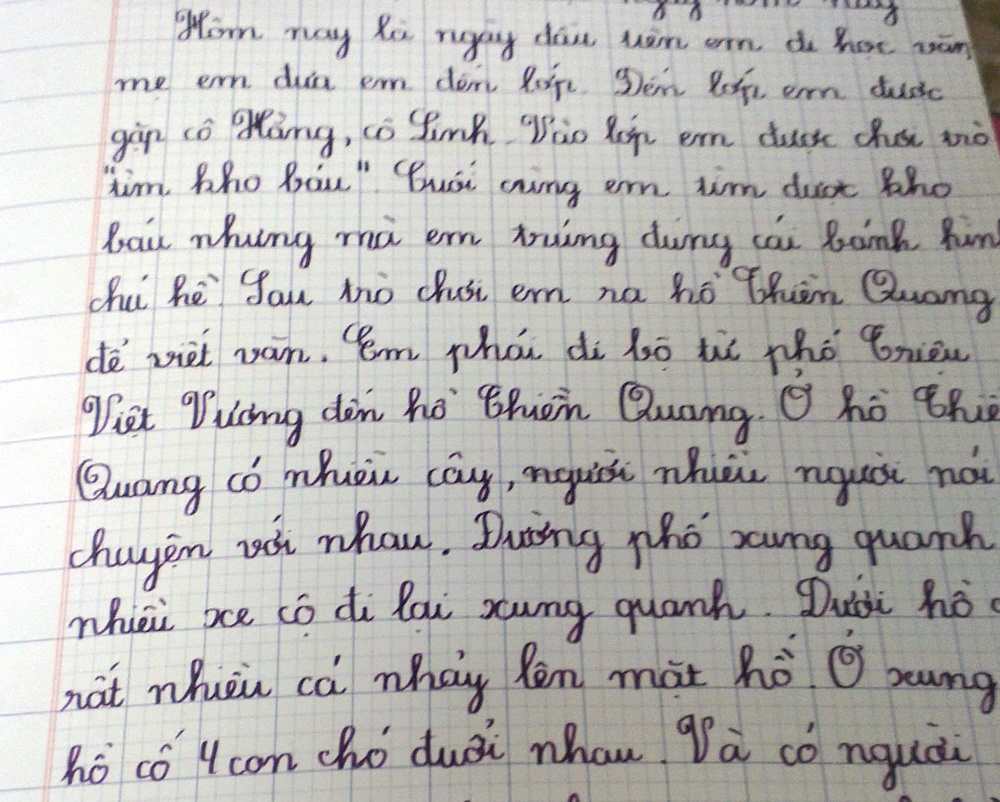 Hôm nay là ngày đầu tiên em đi học văn
mẹ em đưa em đến lớp. Đến lớp em được
gặp cô Hằng, cô Linh. Vào lớp em được chơi trò
"tìm kho báu" Cuối cùng em tìm được kho
báu nhưng mà em trúng đúng cái bánh hìn
chú hề. Sau trò chơi em ra hồ Thiền Quang
để viết văn. Em phải đi bộ từ phố Triệu
Việt Vương đến hồ Thiền Quang. Ở hồ Thiề
Quang có nhiều cây, người nhiều người nói
chuyện với nhau. Đường phố xung quanh
nhiều xe cộ đi lại xung quanh. Dưới hồ c
rất nhiều cá nhảy lên mặt hồ. Ở xung
hồ có 4 con chó đuổi nhau. Và có người